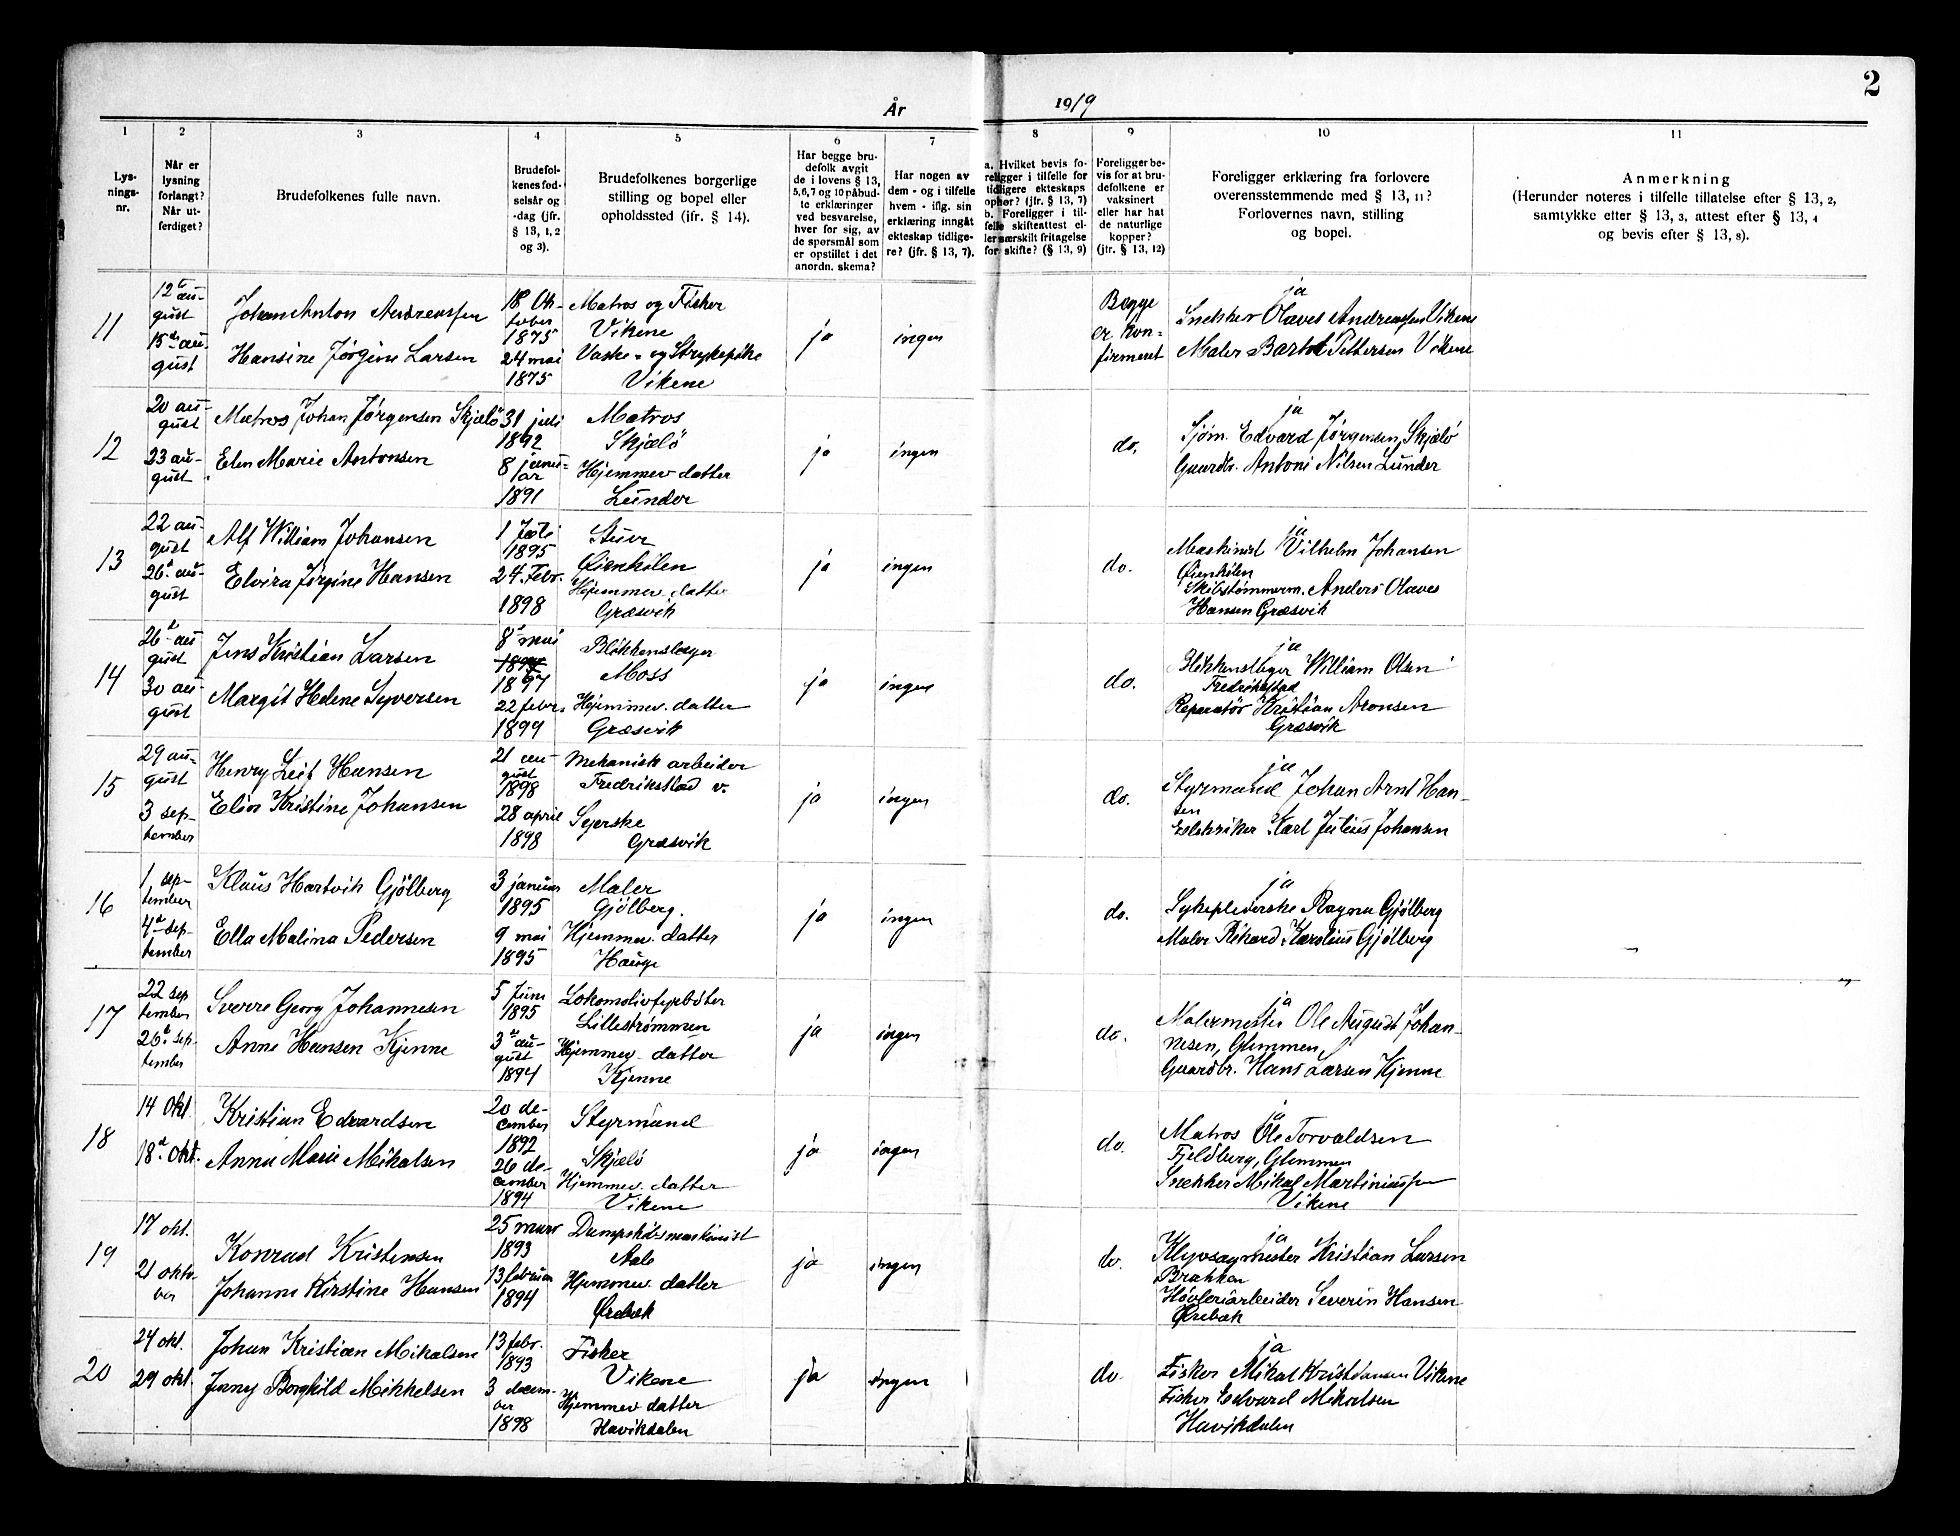 2
År 1919
1 2 3 4 5 6 7 8 9 10 11
Lys-
nings-
nr.
Når er
lysning
forlangt?
Når ut-
ferdiget?
Brudefolkenes fulle navn.
Brudefol-
kenes fød-
selsår og
-dag (jfr.
§ 13, 1, 2
og 3).
Brudefolkenes borgerlige
stilling og bopel eller
opholdssted (jfr. § 14).
Har begge bru-
defolk avgit
de i lovens § 13,
5,6,7 og 10 påbud-
te erklæringer
ved besvarelse,
hver for sig, av
de spørsmål som
er opstillet i det
anordn. skema?
Har nogen av
dem - og i tilfelle
hvem - iflg. sin
erklæring inngått
ekteskap tidlige-
re? (jfr. § 13, 7).
a. Hvilket bevis fo-
religger i tilfelle for
tidligere ekteskaps
ophør? (jfr. § 13, 7)
b. Foreligger i til-
felle skifteattest el-
ler særskilt fritagelse
for skifte? (§ 13, 9)
Foreligger be-
vis for at bru-
defolkene er
vaksinert
eller har hat
de naturlige
kopper?
(jfr. § 13, 12)
Foreligger erklæring fra forlovere
overensstemmende med § 13, 11?
Forlovernes navn, stilling
og bopel.
Anmerkning
(Herunder noteres i tilfelle tillatelse efter § 13, 2,
samtykke etter § 13, 3, attest efter § 13, 4
og bevis efter § 13, 8).
11
12t au-
gust
15de au-
gust
Johan Anton Andreassen
Hansine Jørgine Larsen
18 Ok-
tober
1875
24 mai
1875
Matros og Fisker
Vikene
Vaske- og Strykepike
Vikene
ja
ingen
Begge
er kon-
firmeret
ja
Snekker Olaves Andreassen Vikene
Maler Barth Pettersen Vikene
12
20 au-
gust
23 au-
gust
Matros Johan Jørgensen Skjælö
Elen Marie Antonsen
31 juli
1892
8 janu-
ar
1891
Matros
Skjælö
Hjemmev datter
Lunder
ja
ingen
do.
ja
Sjøm. Edvard Jørgensen, Skjælö
Gaardbr. Antoni Nilsen Lunder
13
22 au-
gust
26d. au-
gust
Alf William Johansen
Elvira Jørgine Hansen
1 Juli
1895
24. Febr.
1898
Stuer
Øienkilen
Hjemmev. datter
Græsvik
ja
ingen
do.
ja
Maskinist Vilhelm Johansen
Øienkilen
Skibstømmerm. Anders Olaves
Hansen Græsvik
14
26d au-
gust
30 au-
gust
Jens Kristian Larsen
Margit Helene Syversen
8d mai
1897
22 febr.
1899
Blikkenslager
Moss
Hjemmev. datter
Græsvik
ja
ingen
do.
ja
Blikkenslager William Olsen
Fredrikstad
Reparatör Kristian Aronsen
Græsvik
15
29 au-
gust
3 sep-
tember
Henry Leif Hansen
Elin Kristine Johansen
21 au-
gust
1898
28 april
1898
Mekanisk arbeider
Fredrikstad v.
Syerske
Græsvik
ja
ingen
do.
ja
Styrmand Johan Arnt Han-
sen
Elektriker Karl Julius Johansen
16
1 sep-
tember
4d sep-
tember
Klaus Hartvik Gjölberg
Ella Malina Pedersen
3 januar
1895
9 mai
1895
Maler
Gjölberg.
Hjemmev. datter
Hauge
ja
ingen
do.
ja
Sykepleierske Ragna Gjölberg
Maler Rikard Karolius Gjölberg
17
22 sep
tember
26d sep-
tember
Sverre Georg Johannesen
Anne Hansen Kjenne
5 Juni
1895
3d au-
gust
1894
Lokomotivfyrböter
Lillestrømmen
Hjemmev. datter
Kjenne
ja
ingen
do.
ja
Malermester Ole August Johan-
nesen, Glemmen,
Gaardbr. Hans Larsen Kjenne
18
14 Okt.
18d. Okt.
Kristian Edvardsen
Anna Marie Mikalsen
20 de-
cember
1892
26 de-
cember
1894
Styrmand
Skjælö
Hjemmev. datter
Vikene
ja
ingen
do.
ja
Matros Ole Torvaldsen
Fjeldberg, Glemmen
Snekker Mikal Martiniussen
Vikene
19
17 okt.
21 okto-
ber
Konrad Kristensen
Johanne Kirstine Hansen
25 mars
1893
13 februar
1894
Dampskibsmaskinist
Aale
Hjemmev. datter
Ørebæk
ja
ingen
do.
ja
Klyvsagmester Kristian Larsen
Brakken
Høvleriarbeider Severin Hansen
Ørebæk
20
24 okt.
29 okt.
Johan Kristian Mikalsen
Jenny Borghild Mikkelsen
13 febr.
1893
3 decem-
ber
1898
Fisker
Vikene
Hjemmev datter
Havikdalen
ja
ingen
do.
ja
Fisker Mikal Kristiansen Vikene
Fisker Edvard Mikalsen
Havikdalen